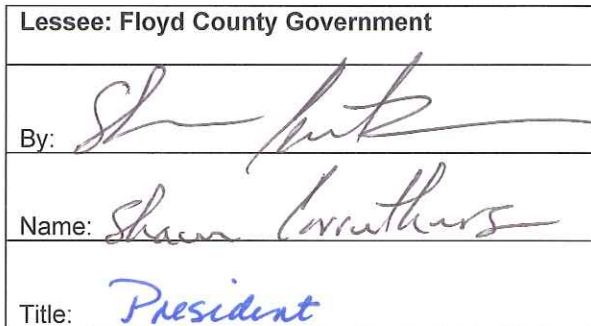 Lessee: Floyd County Government
By:
Name: Shawn Carruthers
Title: President